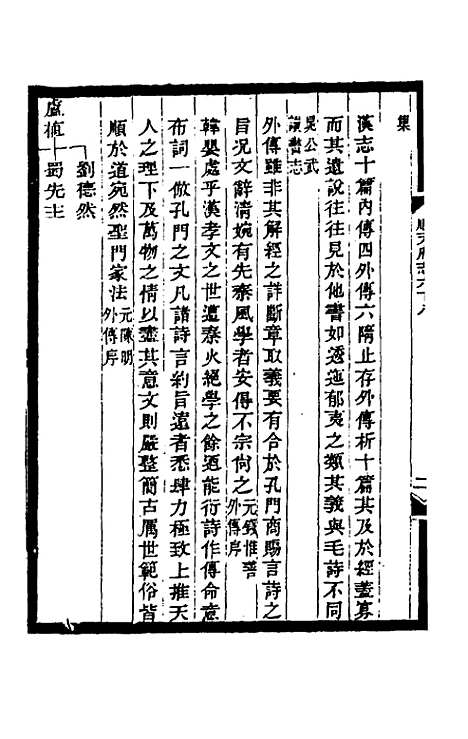 集
漢志十篇內傳四外傳六隋止存外傳析十篇其及於經蓋寡
而其遺說往往見於他書如逶迤郁夷之類其義與毛詩不同
晁公武
讀書志
外傳雖非其解經之詳斷章取義要有合於孔門商賜言詩之
旨况文辭清婉有先秦風學者安得不宗尚之元錢惟善
外傳序
韓嬰處乎漢孝文之世遭秦火絕學之餘迺能衍詩作傳命意
布詞一倣孔門之文凡諸詩言約旨遠者悉肆力極致上推天
人之理下及萬物之情以盡其意文則嚴整簡古厲世範俗皆
順於道宛然聖門家法元陳明
外傳序
劉德然
盧植 蜀先主
順天府志六十八